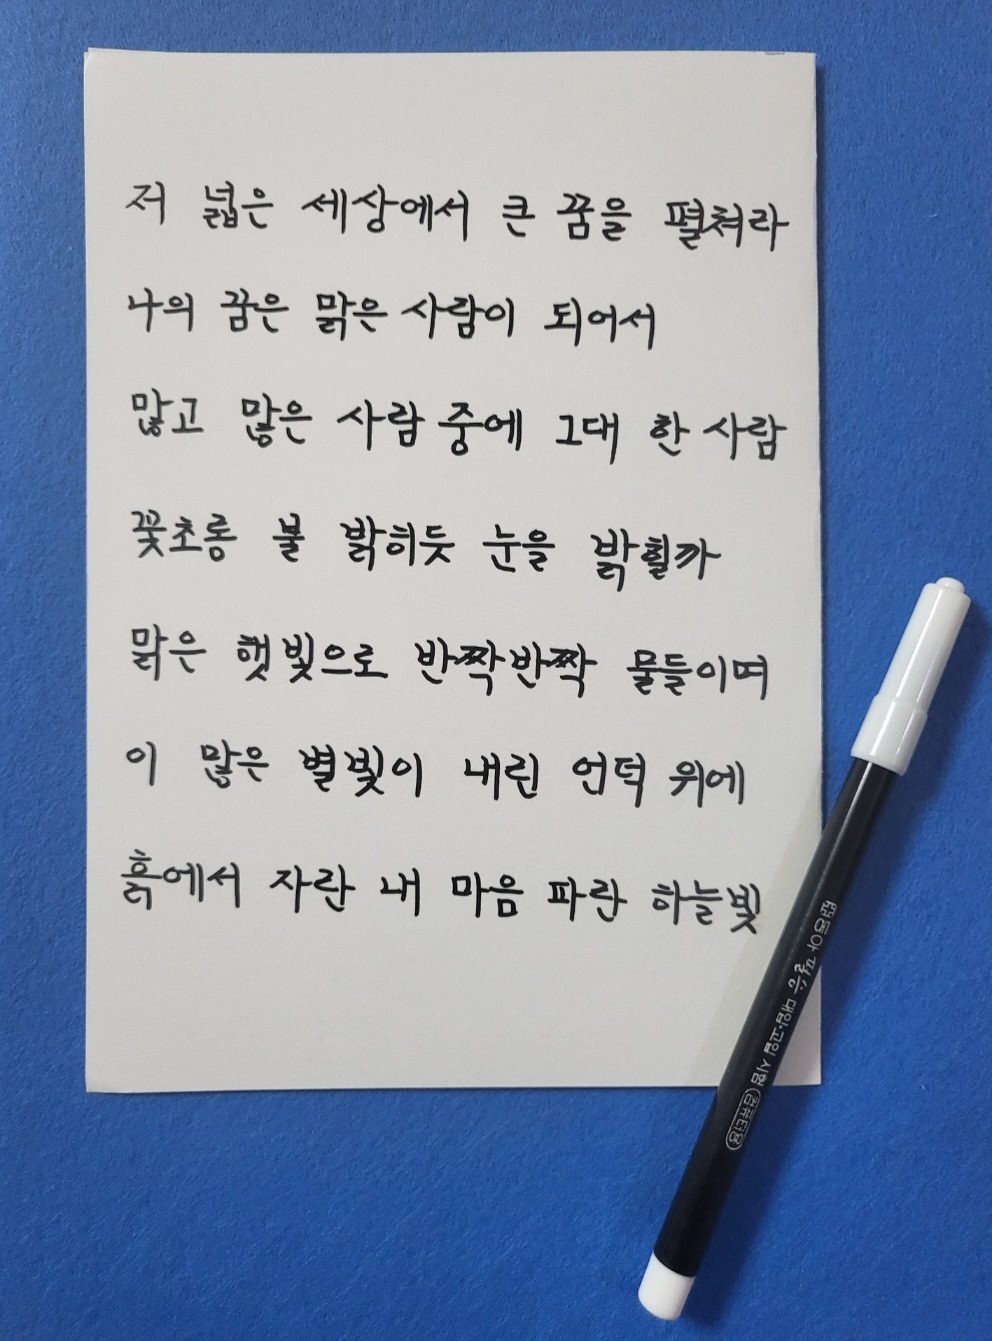 저 넓은 세상에서 큰 꿈을 펼쳐라
나의 꿈은 맑은 사람이 되어서
많고 많은 사람 중에 그대 한 사람
꽃초롱 불 밝히듯 눈을 밝힐까
맑은 햇빛으로 반짝반짝 물들이며
이 많은 별빛이 내린 언덕 위에
흙에서 자란 내 마음 파란 하늘빛
동아 대입·고입 시험 컴퓨터용